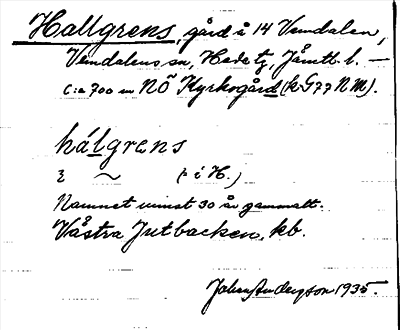 Hallgrens, gård å 14 Vemdalen,
Vemdalens sn, Hede tg, Jämtl. l. —
c:a 700 m NÖ Kyrkogård (k G77 NM).
hálgrens
ξ ~ (i H.)
Namnet minst 30 år gammalt.
Västra Jutbacken, kb.
Johan Anderson 1935.